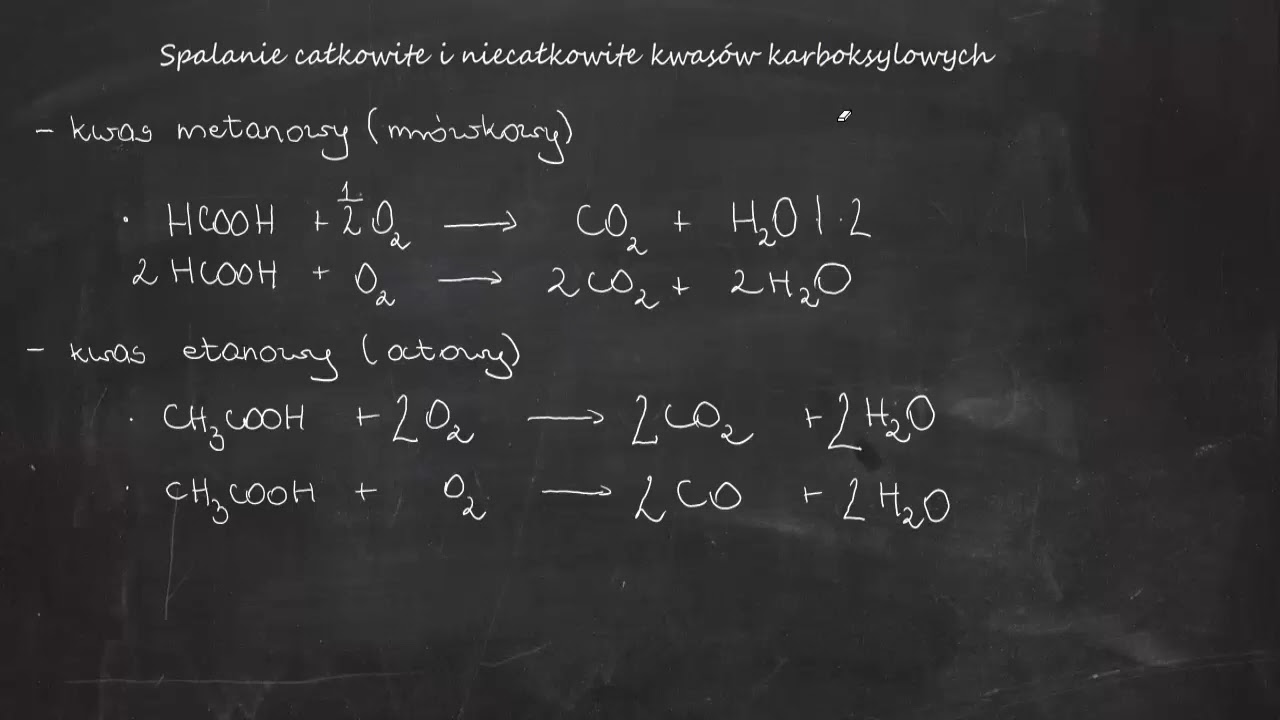 Spalanie całkowite i niecałkowite kwasów karboksylowych
- kwas metanowy (mrówkowy)
· HCOOH + 1/2 O₂ → CO₂ + H₂O | · 2
2 HCOOH + O₂ → 2CO₂ + 2H₂O
- kwas etanowy (octowy)
· CH₃COOH + 2O₂ → 2CO₂ + 2H₂O
· CH₃COOH + O₂ → 2CO + 2H₂O